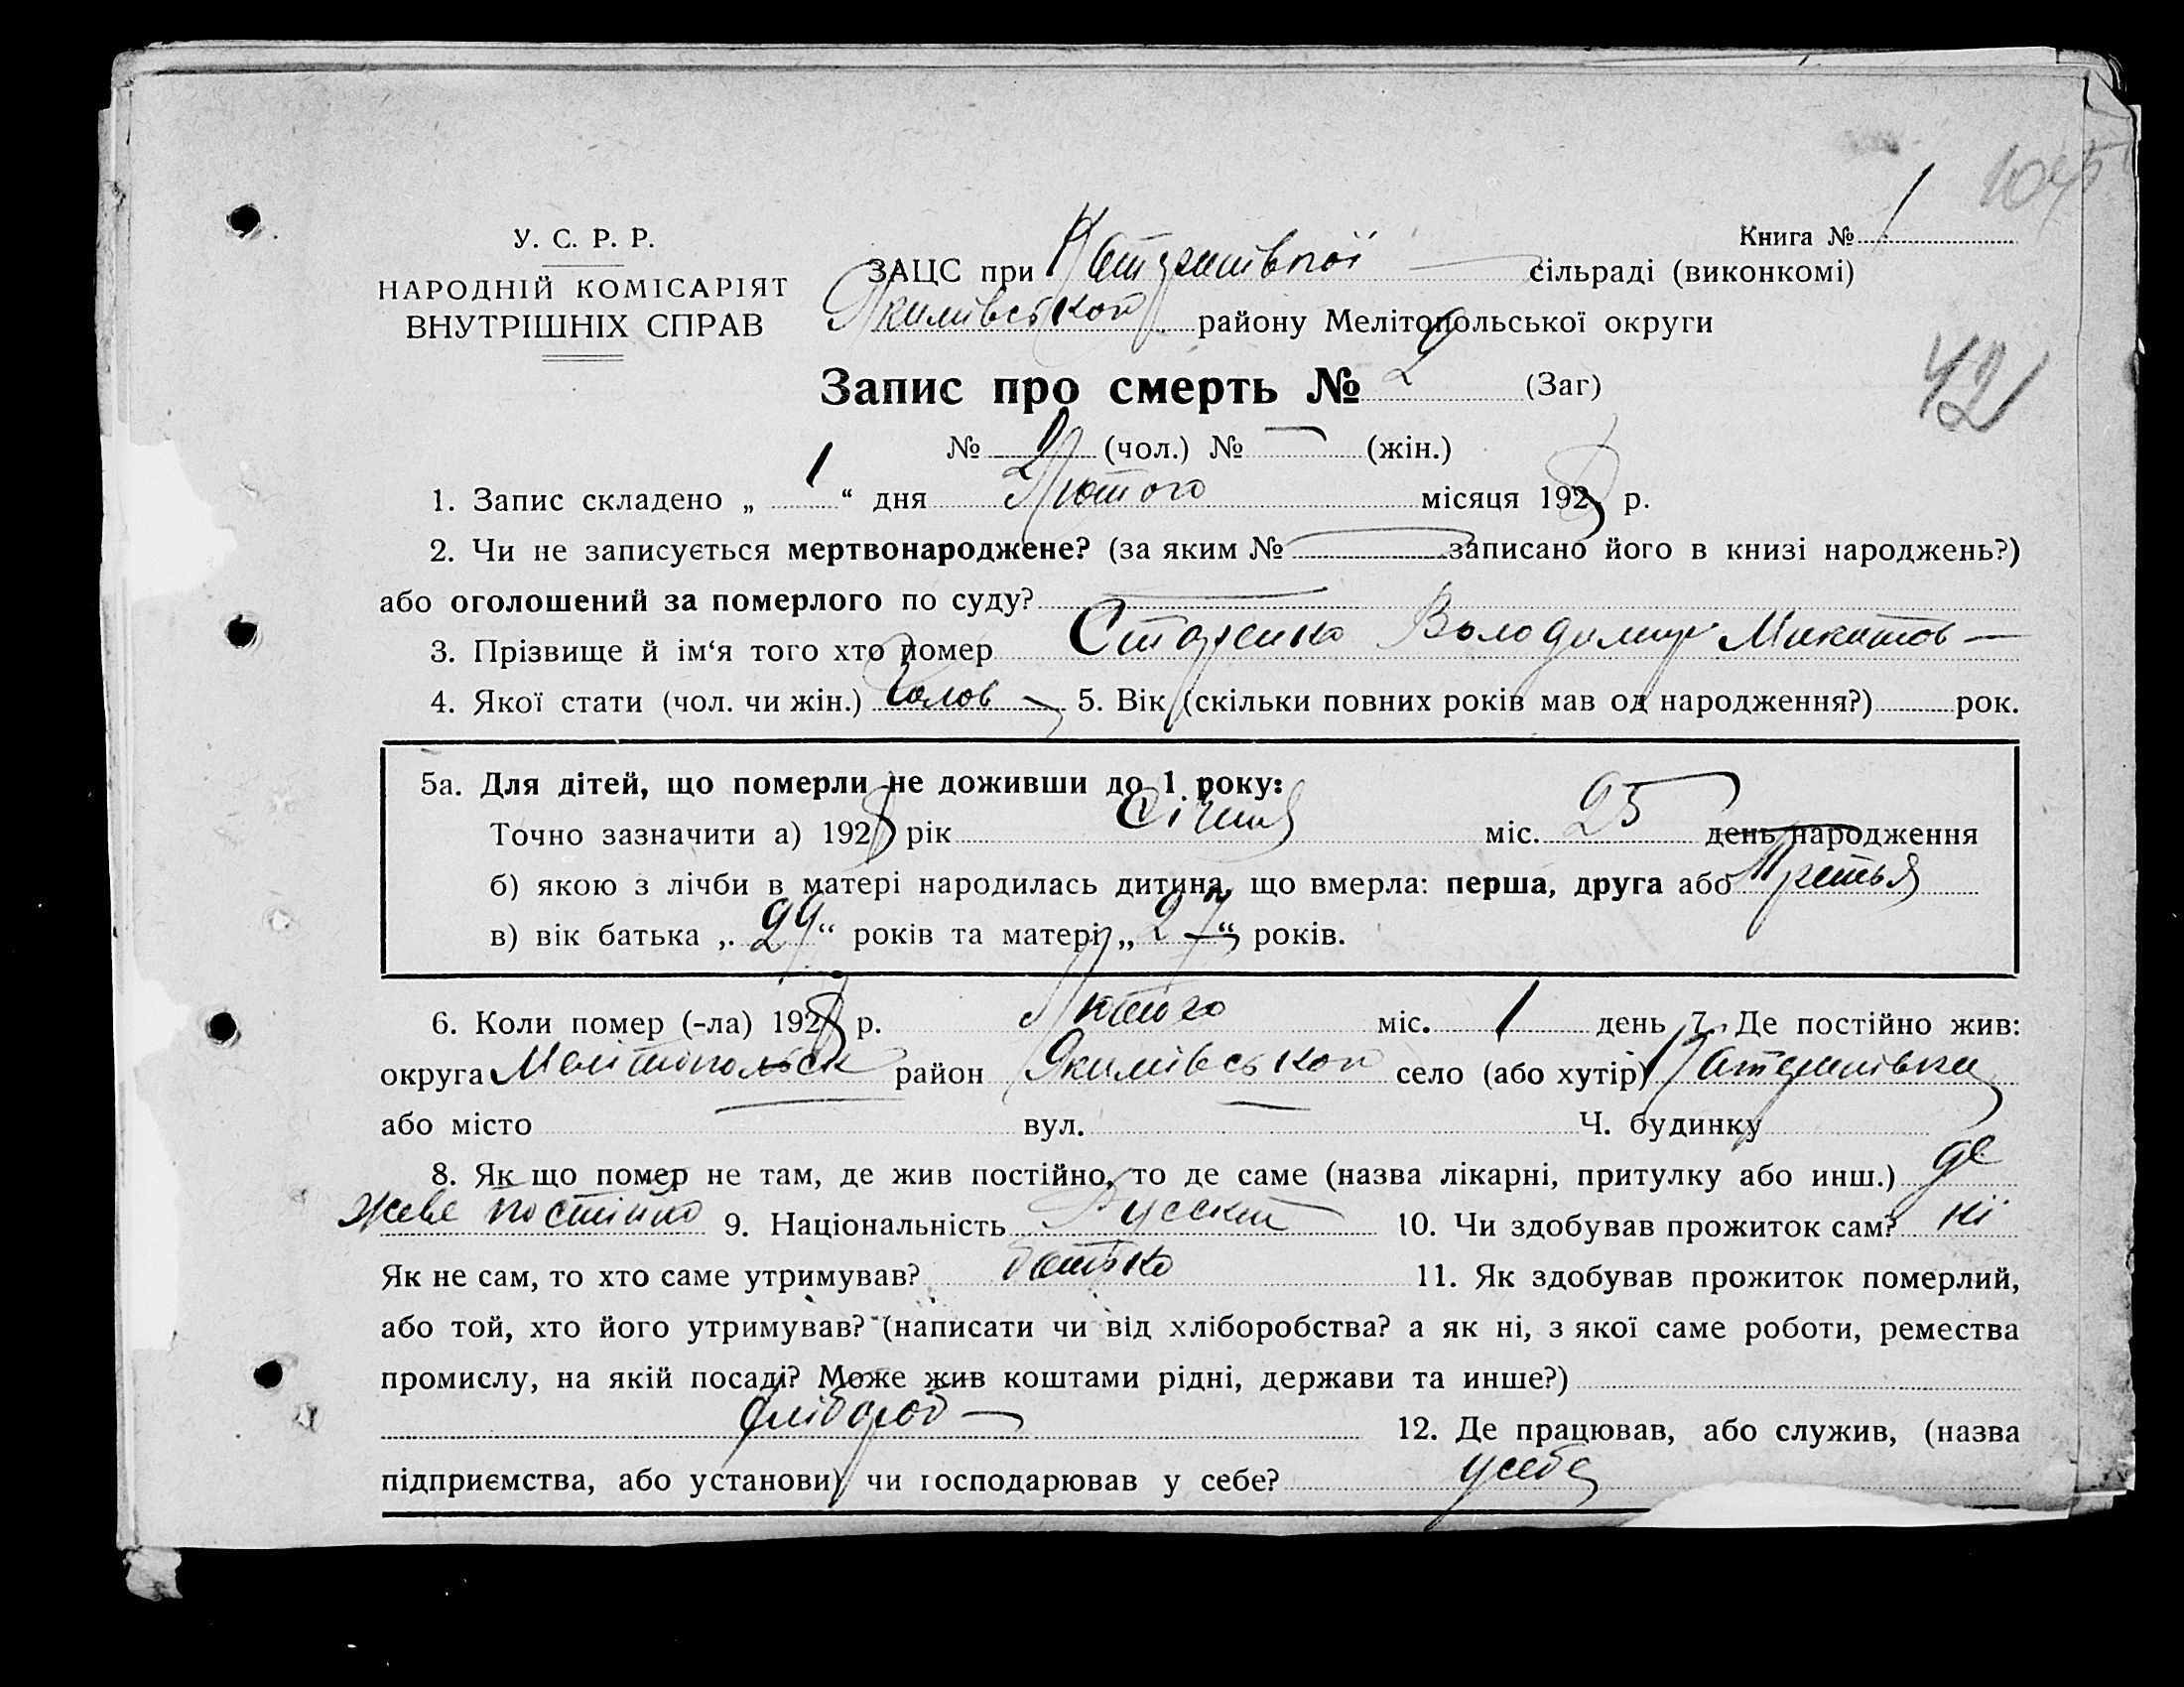 У. С. Р. Р.
НАРОДНІЙ КОМІСАРІЯТ
ВНУТРІШНІХ СПРАВ
Книга № 1
ЗАЦС при сільраді (виконкомі)
Якимівської району Мелітопольської округи
42
Запис про смерть № 2 (Заг)
№ 2 (чол.) № — (жін.)
1. Запис складено „ 1 “ дня Лютого місяця 1928 р.
2. Чи не записується мертвонароджене? (за яким № — записано його в книзі народжень?)
або оголошений за померлого по суду? —
3. Прізвище й ім‘я того хто помер Володимир Микитов
4. Якої стати (чол. чи жін.) Чолов 5. Вік (скільки повних років мав од народження?) рок.
5а. Для дітей, що померли не доживши до 1 року:
Точно зазначити а) 1928 рік Січня міс. 25 день народження
б) якою з лічби в матері народилась дитина, що вмерла: перша, друга або Третья
в) вік батька „ 29 “ років та матері „ 27 “ років.
6. Коли помер (-ла) 1928 р. Лютого міс. 1 день 7. Де постійно жив:
округа Мелітопольск район Якимівської село (або хутір)
або місто — вул. — Ч. будинку
8. Як що помер не там, де жив постійно, то де саме (назва лікарні, притулку або инш.) де
живе постійно 9. Національність Русский 10. Чи здобував прожиток сам? ні
Як не сам, то хто саме утримував? батько 11. Як здобував прожиток померлий,
або той, хто його утримував? (написати чи від хліборобства? а як ні, з якої саме роботи, ремества
промислу, на якій посаді? Може жив коштами рідні, держави та инше?)
хлібороб 12. Де працював, або служив, (назва
підприємства, або установи) чи господарював у себе? у себе